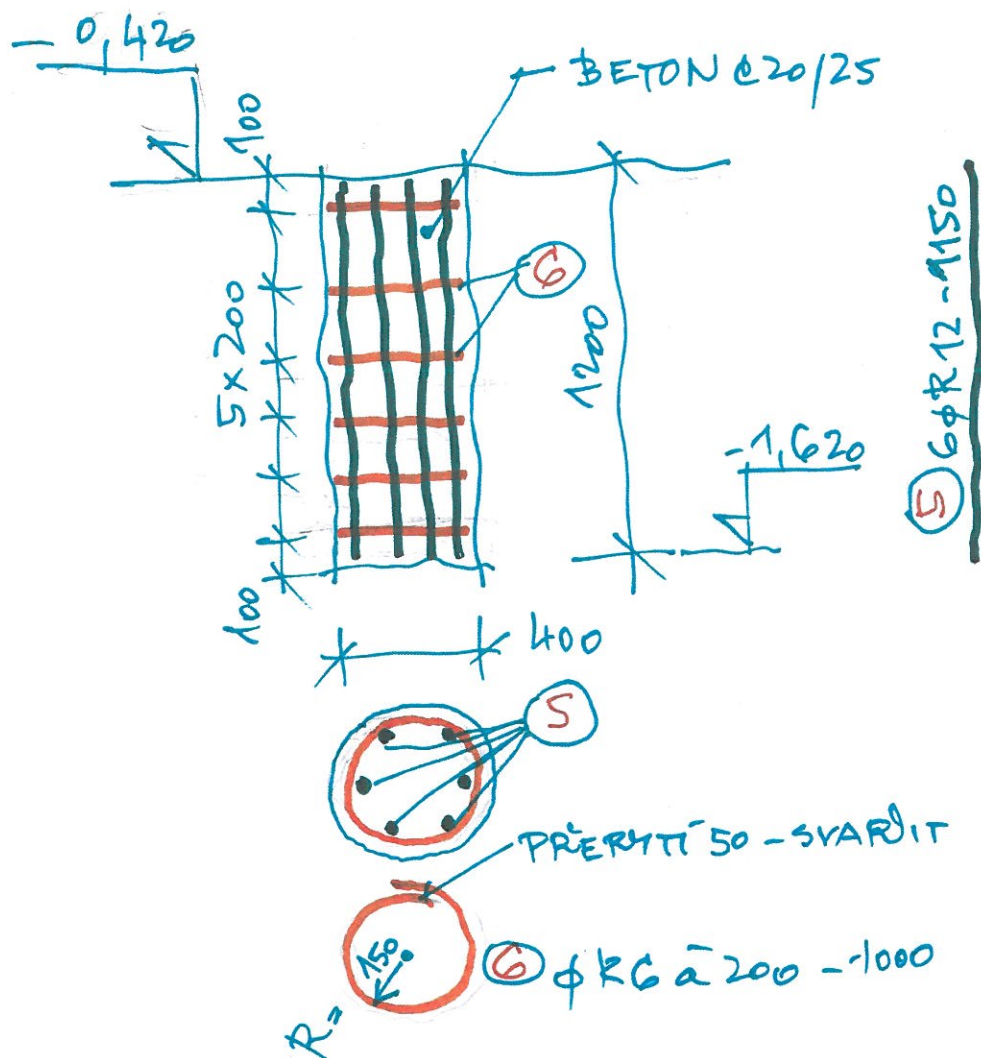 - 0,420
BETON C20/25
100
5x200
100
6
1200
-1,620
5 6øR12-1150
400
5
PŘEKRYTÍ 50 - SVAŘIT
R=150
6 øR6 á 200 - 1000